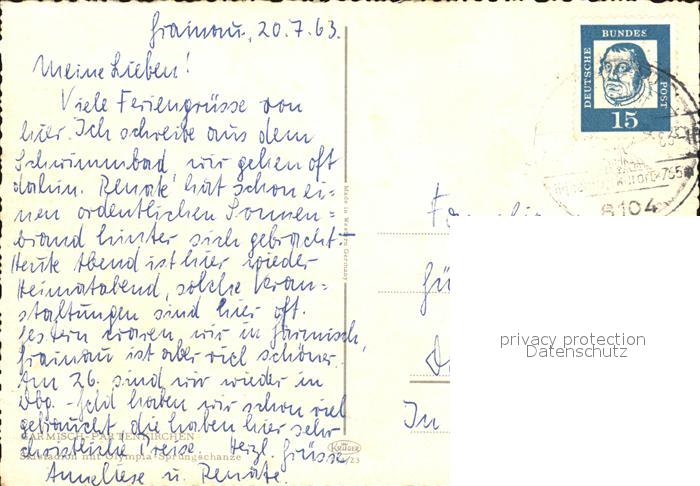 Grainau, 20.7.63.
Meine Lieben!
Viele Feriengrüsse von
hier. Ich schreibe aus dem
Schwimmbad, wir gehen oft
dahin. Renate hat schon ei-
nen ordentlichen Sonnen=
brand hinter sich gebracht.
Heute Abend ist hier wieder
Heimatabend, solche Veran=
staltungen sind hier oft.
Gestern waren wir in Garmisch,
Grainau ist aber viel schöner.
Am 26. sind wir wieder in
Dbg. Geld haben wir schon viel
gebraucht, die haben hier sehr
christliche Preise. Herzl. Grüsse
Anneliese u. Renate.
GARMISCH-PARTENKIRCHEN
Skistadion mit Olympia-Sprungschanze
Made in Western Germany
KRÜGER
/23
DEUTSCHE BUNDESPOST
15
6104
In
privacy protection
Datenschutz